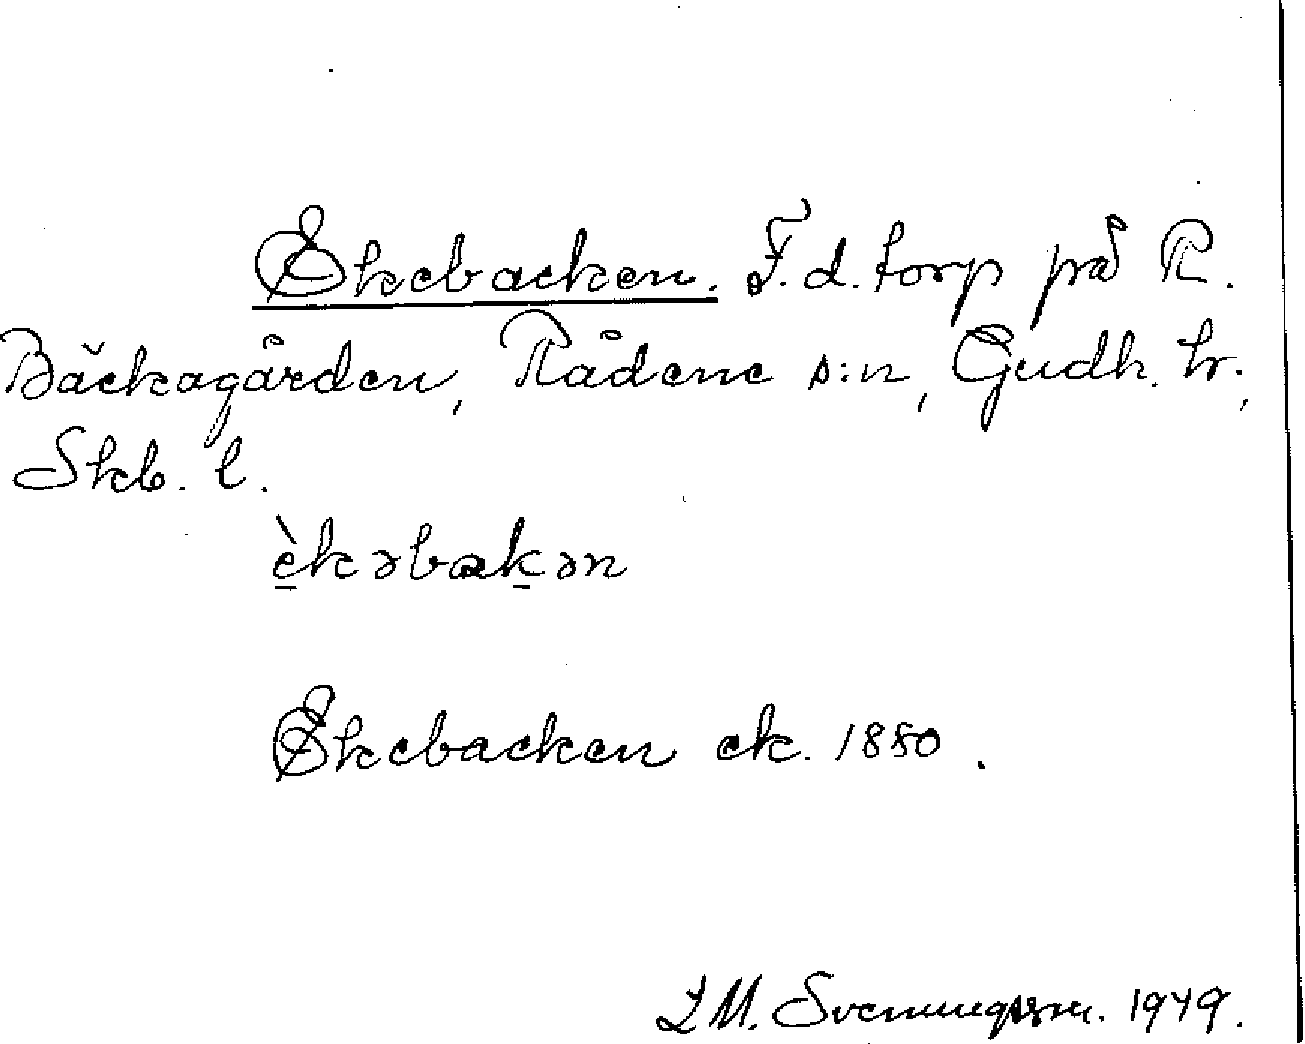 Ekebacken. F.d. torp på R.
Bäckagården, Rådene s:n, Gudh. hr.,
Skb. l.
èkəbakən
Ekebacken ek. 1880.
L M. Svenungsson. 1949.